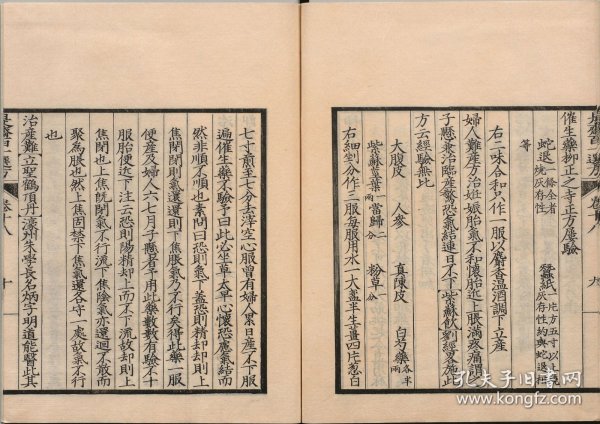 催生藥抑正之寺正方屢驗
蛇退一條全者燒灰存性
蠶紙一片方五寸以上燒灰存性約與蛇退相等
右二味合和只作一服以麝香溫酒調下立產
婦人難産方治妊娠胎氣不和懷胎近上脹滿疼痛謂之
子懸兼治臨產驚恐氣結連日不下紫蘇飲劉經畧施此
方云經驗無比
大腹皮 人參 真陳皮 白芍藥各半兩
紫蘇莖葉一兩 當歸二分 粉草一分
右細剉分作三服每服用水一大盞半生薑四片葱白
七寸煎至七分去滓空心服曾有婦人累日產不下服
遍催生藥不驗予曰此必坐草太早心懷恐懼氣結而
然非不順也素問曰恐則氣下蓋恐則精却却則上
焦閉閉則氣還還則下焦脹氣乃不行矣得此藥一服
便產及婦人六七月子懸者予用此藥數數有驗不十
服胎便近下注云恐則陽精却上而不下流故却則上
焦閉也上焦旣閉氣不行流下焦陰氣亦還迴不散而
聚為脹也然上焦固禁下焦氣還各守一處故氣不行
也
治產難立聖鶴頂丹濠州朱學長名炳字明道能醫此其
是齋百一選方
卷十八
九
十
孔夫子旧書網
www.kongfz.com